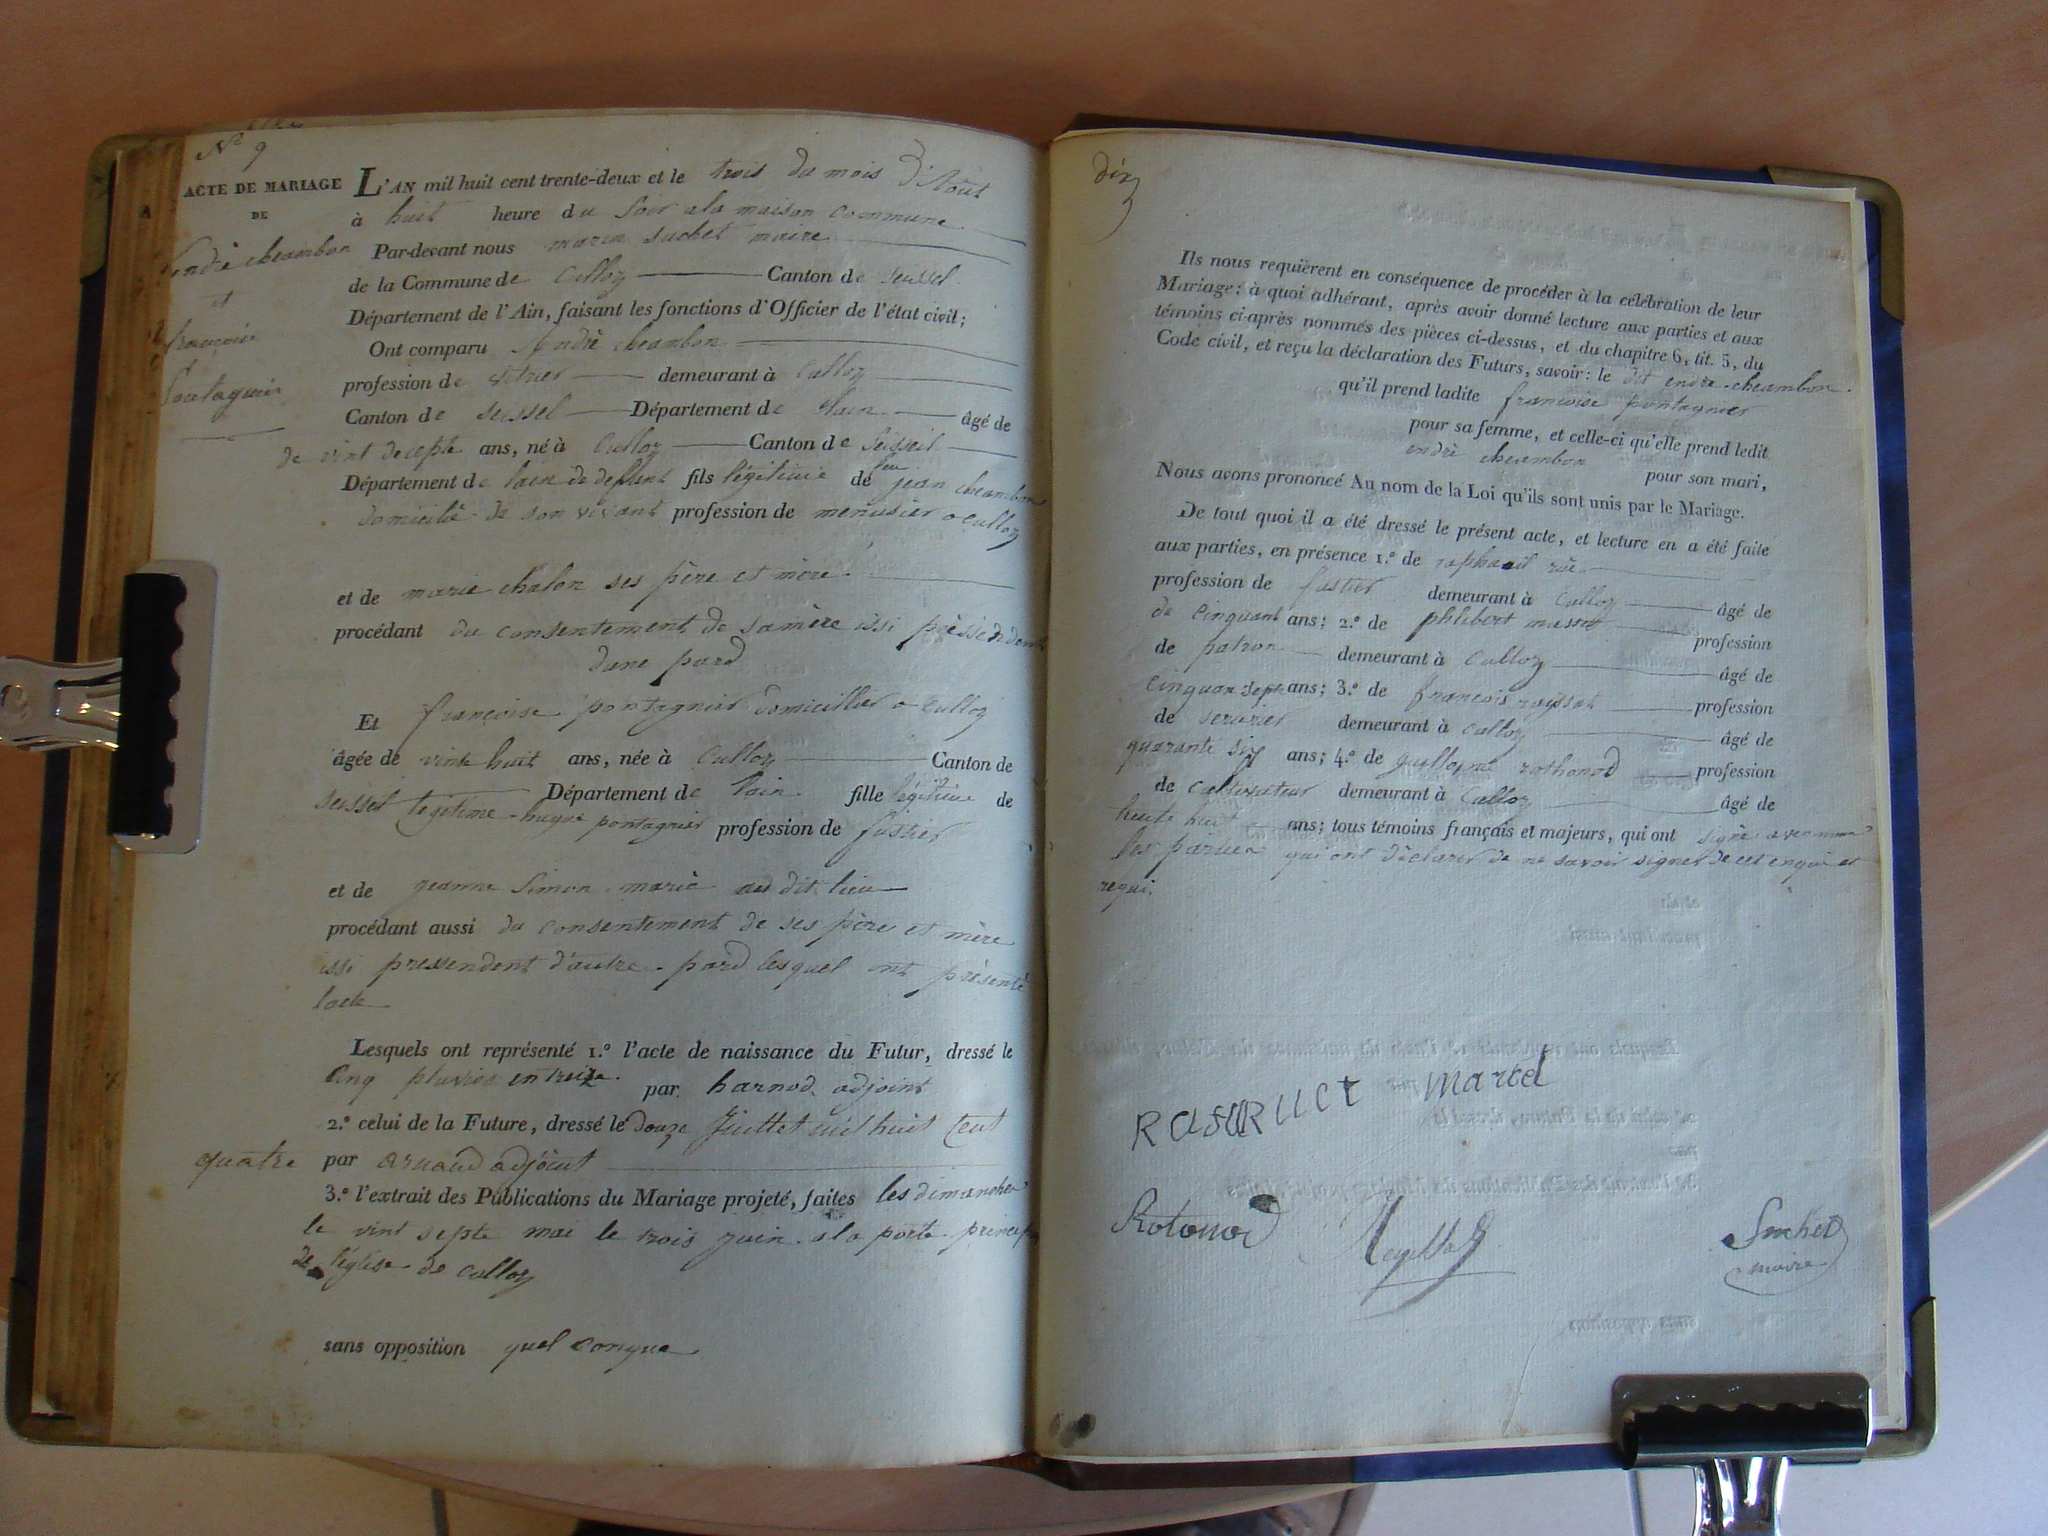 N° 9
ACTE DE MARIAGE
DE
André cheambon
et
françoise
Pontagnier
L'AN mil huit cent trente-deux et le trois du mois d'Août
à huit heure du Soir a la maison commune
Par-devant nous marin suchet maire
de la Commune de Culloz Canton de seissel
Département de l'Ain, faisant les fonctions d'Officier de l'état civil;
Ont comparu André cheambon
profession de demeurant à Culloz
Canton de seissel Département de lain âgé de
de vint de septe ans, né à Culloz Canton de Seisseil
Département de lain de defunt fils légitime de feu jean cheambon
domicilié de son vivant profession de menusier a Culloz
et de marie chalon ses père et mère
procédant du consentement de sa mère issi pressendent
dune pard
Et françoise pontagnier domicillier a Culloz
âgée de vint huit ans, née à Culloz Canton de
seissel Département de lain fille légitime de
legitime hugue pontagnier profession de fustier
et de jeanne Simon marié au dit lieu
procédant aussi du consentement de ses père et mère
issi pressendent d'autre pard lesquel ont présenté
lacte
Lesquels ont représenté 1.° l'acte de naissance du Futur, dressé le
Cinq pluviose en treize par harnod adjoint
2.° celui de la Future, dressé le douze Juillet mil huit Cent
quatre par arnaud adjoint
3.° l'extrait des Publications du Mariage projeté, faites les dimanches
le vint septe mai le trois juin a la porte principa
de l'église de culloz
sans opposition quel conque
dix
Ils nous requièrent en conséquence de procéder à la célébration de leur
Mariage; à quoi adhérant, après avoir donné lecture aux parties et aux
témoins ci-après nommés des pièces ci-dessus, et du chapitre 6, tit. 5, du
Code civil, et reçu la déclaration des Futurs, savoir: le dit endre cheambon
qu'il prend ladite françoise pontagnier
pour sa femme, et celle-ci qu'elle prend ledit
endrè cheambon pour son mari,
Nous avons prononcé Au nom de la Loi qu'ils sont unis par le Mariage.
De tout quoi il a été dressé le présent acte, et lecture en a été faite
aux parties, en présence 1.° de raphaeil
profession de fustier demeurant à Culloz âgé de
de Cinquant ans; 2.° de phlibert profession
de patron demeurant à Culloz âgé de
Cinquan septe ans; 3.° de françois profession
de serurier demeurant à Culloz âgé de
quarante six ans; 4.° de guillome rothonod profession
de Cultivateur demeurant à Culloz âgé de
trente huit ans; tous témoins français et majeurs, qui ont signè avec nous
les parties qui ont déclarer de ne savoir signer de ces enqui et
requi.
martel
Rotonod
Suchet
maire